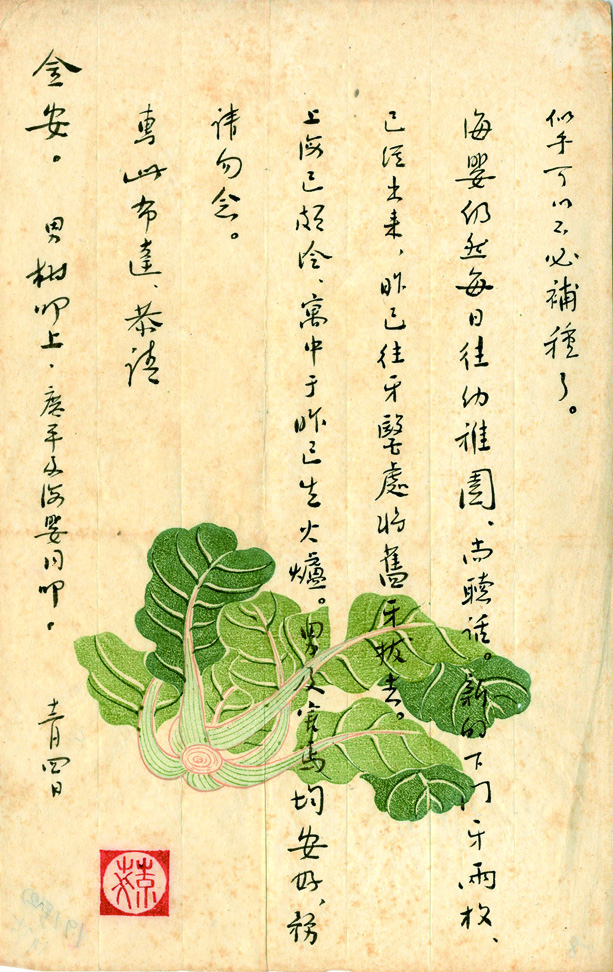 似乎可以不必補種了。
海嬰仍然每日往幼稚園、尚聽話。新的下門牙兩枚、
已經出来，昨已往牙醫處將舊牙拔去。
上海已頗冷、寓中于昨已生火爐。男及害馬均安好、務
請勿念。
專此布達、恭請
金安。　男樹叩上．廣平及海嬰同叩．　十二月四日